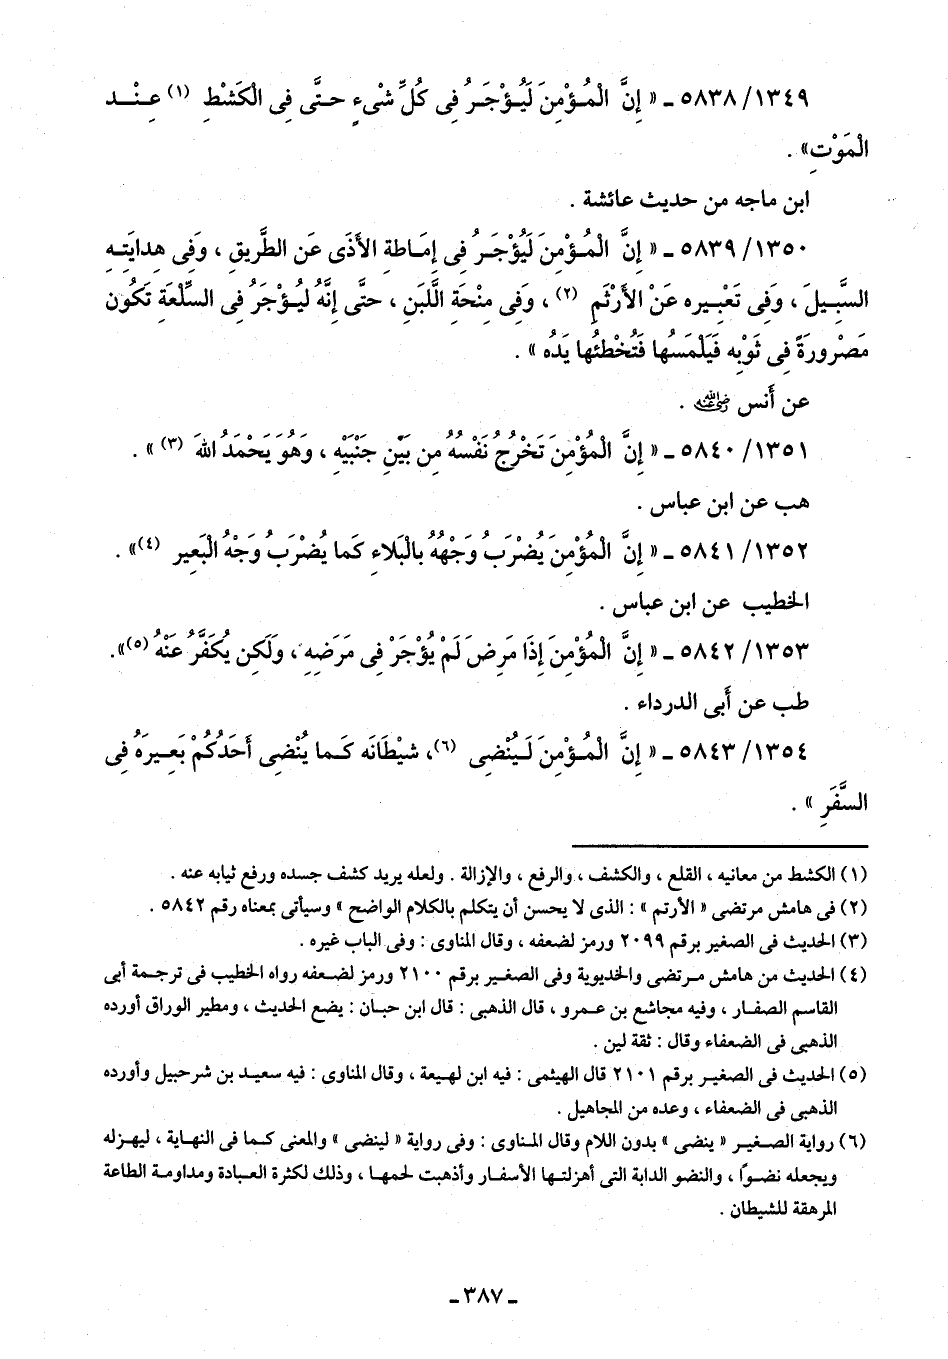 ٥٨٣٨/١٣٤٩ ـ « إِنَّ الْمُؤْمِنَ لَيُؤْجَرُ فِى كُلِّ شَىْءٍ حتَّى فِى الْكَشْطِ (١) عِنْد
الْمَوْتِ» .
ابن ماجه من حديث عائشة .
٥٨٣٩/١٣٥٠ ـ « إِنَّ الْمُؤْمِنَ لَيُؤْجَرُ فِى إِمَاطَةِ الأَذَى عَن الطَّرِيقِ ، وَفِى هِدايَتِهِ
السَّبِيلَ ، وَفِى تَعْبِيره عَنْ الأَرْثَمِ (٢) ، وَفِى مِنْحَةِ اللَّبَنِ ، حتَّى إِنَّهُ لَيُؤْجَرُ فِى السِّلْعَةِ تَكُون
مَصْرورَةً فِى ثَوْبِه فَيَلْمَسُها فَتُخْطئُها يَدُه » .
عن أَنس ﵁ .
٥٨٤٠/١٣٥١ ـ « إِنَّ الْمُؤْمِنَ تَخْرُجُ نَفْسُهُ مِن بَيْنِ جَنْبَيْهِ ، وَهُوَ يَحْمَدُ اللهَ (٣) » .
هب عن ابن عباس .
٥٨٤١/١٣٥٢ ـ « إِنَّ الْمُؤْمِنَ يُضْرَبُ وَجْهُهُ بالْبَلاءِ كَما يُضْرَبُ وَجْهُ الْبَعِير (٤)» .
الخطيب عن ابن عباس .
٥٨٤٢/١٣٥٣ ـ « إِنَّ الْمُؤْمِنَ إِذَا مَرِضَ لَمْ يُؤْجَرْ فِى مَرَضِهِ ، وَلَكِن يُكَفَّرُ عَنْهُ (٥)».
طب عن أَبى الدرداء .
٥٨٤٣/١٣٥٤ ـ « إِنَّ الْمُؤْمِنَ لَيُنْضِى (٦)، شيْطَانَه كَما يُنْضِى أَحَدُكُمْ بَعِيرَهُ فِى
السَّفَرِ » .
(١) الكشط من معانيه ، القلع ، والكشف ، والرفع ، والإزالة . ولعله يريد كشف جسده ورفع ثيابه عنه .
(٢) فى هامش مرتضى « الأرتم » : الذى لا يحسن أن يتكلم بالكلام الواضح » وسيأتى بمعناه رقم ٥٨٤٢ .
(٣) الحديث فى الصغير برقم ٢٠٩٩ ورمز لضعفه ، وقال المناوى : وفى الباب غيره .
(٤) الحديث من هامش مرتضى والخديوية وفى الصغير برقم ٢١٠٠ ورمز لضعفه رواه الخطيب فى ترجمة أبى
القاسم الصفار ، وفيه مجاشع بن عمرو ، قال الذهبى : قال ابن حبان : يضع الحديث ، ومطير الوراق أورده
الذهبى فى الضعفاء وقال : ثقة لين .
(٥) الحديث فى الصغير برقم ٢١٠١ قال الهيثمى : فيه ابن لهيعة ، وقال المناوى : فيه سعيد بن شرحبيل وأورده
الذهبى فى الضعفاء ، وعده من المجاهيل .
(٦) رواية الصغير « ينضى » بدون اللام وقال المناوى : وفى رواية « لينضى » والمعنى كما فى النهاية ، ليهزله
ويجعله نضوًا ، والنضو الدابة التى أهزلتها الأسفار وأذهبت لحمها ، وذلك لكثرة العبادة ومداومة الطاعة
المرهقة للشيطان .
ـ ٣٨٧ ـ